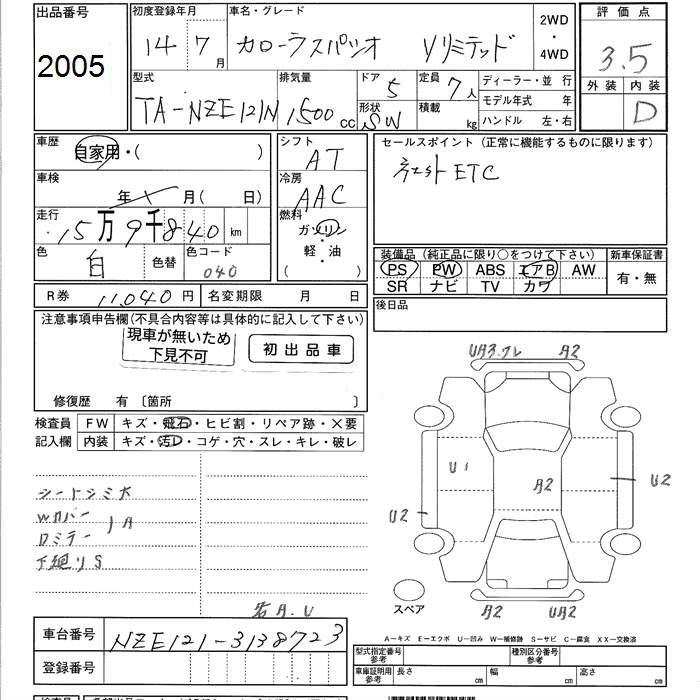 出品番号
2005
初度登録年月
14 7月
車名・グレード
カローラスパシオ Vリミテッド
2WD
・
4WD
評価点
3.5
外装 内装
D
型式
TA-NZE121N
排気量
1500cc
ドア
5
形状
SW
定員
7人
積載
kg
ディーラー・並行
モデル年式 年
ハンドル 左・右
車歴
自家用・( )
車検
年 月(日)
走行
15万9千840km
色
白
色替
色コード
040
シフト
AT
冷房
AAC
燃料
ガソリン
軽・油
( )
セールスポイント(正常に機能するものに限ります)
ETC
装備品(純正品に限り○をつけて下さい)
PS PW ABS エアB AW
SR ナビ TV カワ
新車保証書
有・無
R券 11,040円
名変期限 月 日
後日品
注意事項申告欄(不具合内容等は具体的に記入して下さい)
現車が無いため
下見不可
初出品車
修復歴 有〔箇所 〕
検査員
記入欄
FW キズ・飛石・ヒビ割・リペア跡・×要
内装 キズ・汚レ・コゲ・穴・スレ・キレ・破レ
シートシミ大
Wカバー
ロミラー
A
下廻りS
右A.U
UA3.ワレ A2
U1
A2
U2
U2
A2 UA2
スペア
車台番号
NZE121-3138723
登録番号
A-キズ E-エクボ U-凹み W-補修跡 S-サビ C-腐食 XX-交換済
型式指定番号
参考
種別区分番号
参考
車庫証明用
参考
長さ cm 幅 cm 高さ cm